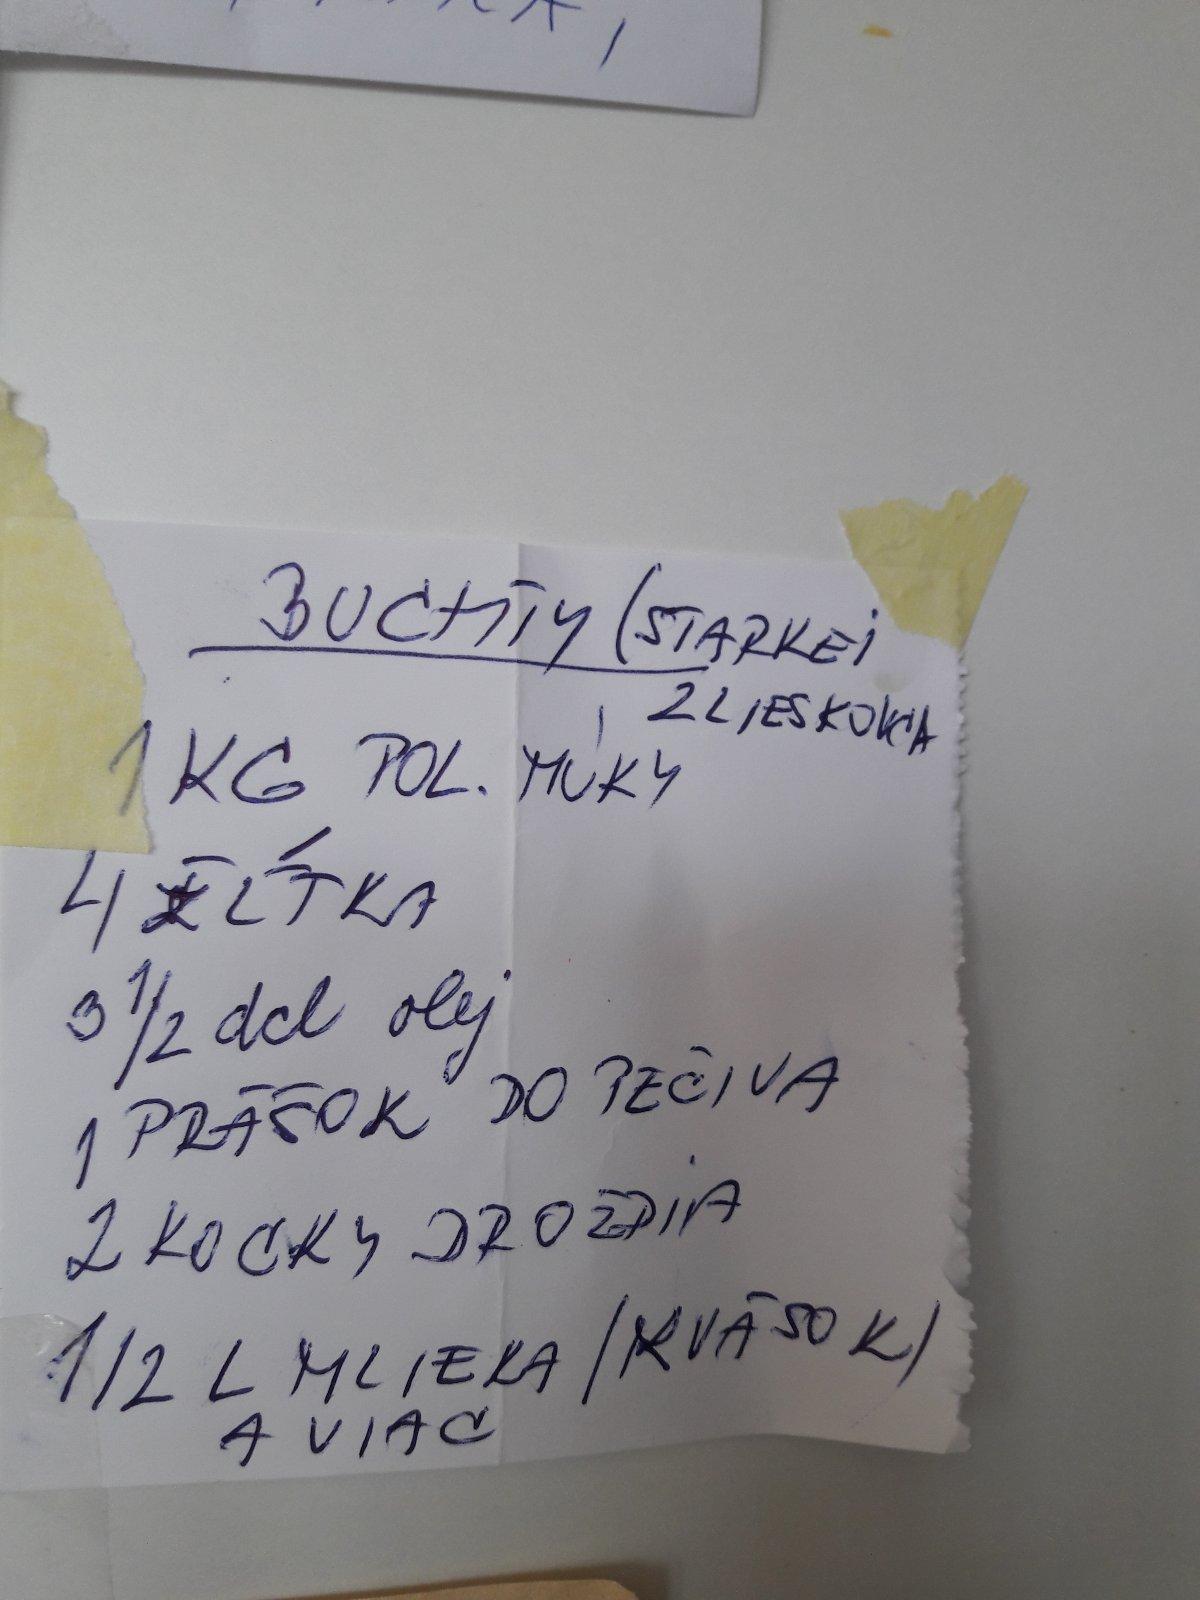 BUCHTY (STARKEJ
Z LIESKOVCA
1 KG POL. MÚKY
4 ŽĹTKA
3 1/2 dcl olej
1 PRÁŠOK DO PEČIVA
2 KOCKY DROŽDIA
1/2 L MLIEKA /KVÁSOK/
A VIAC